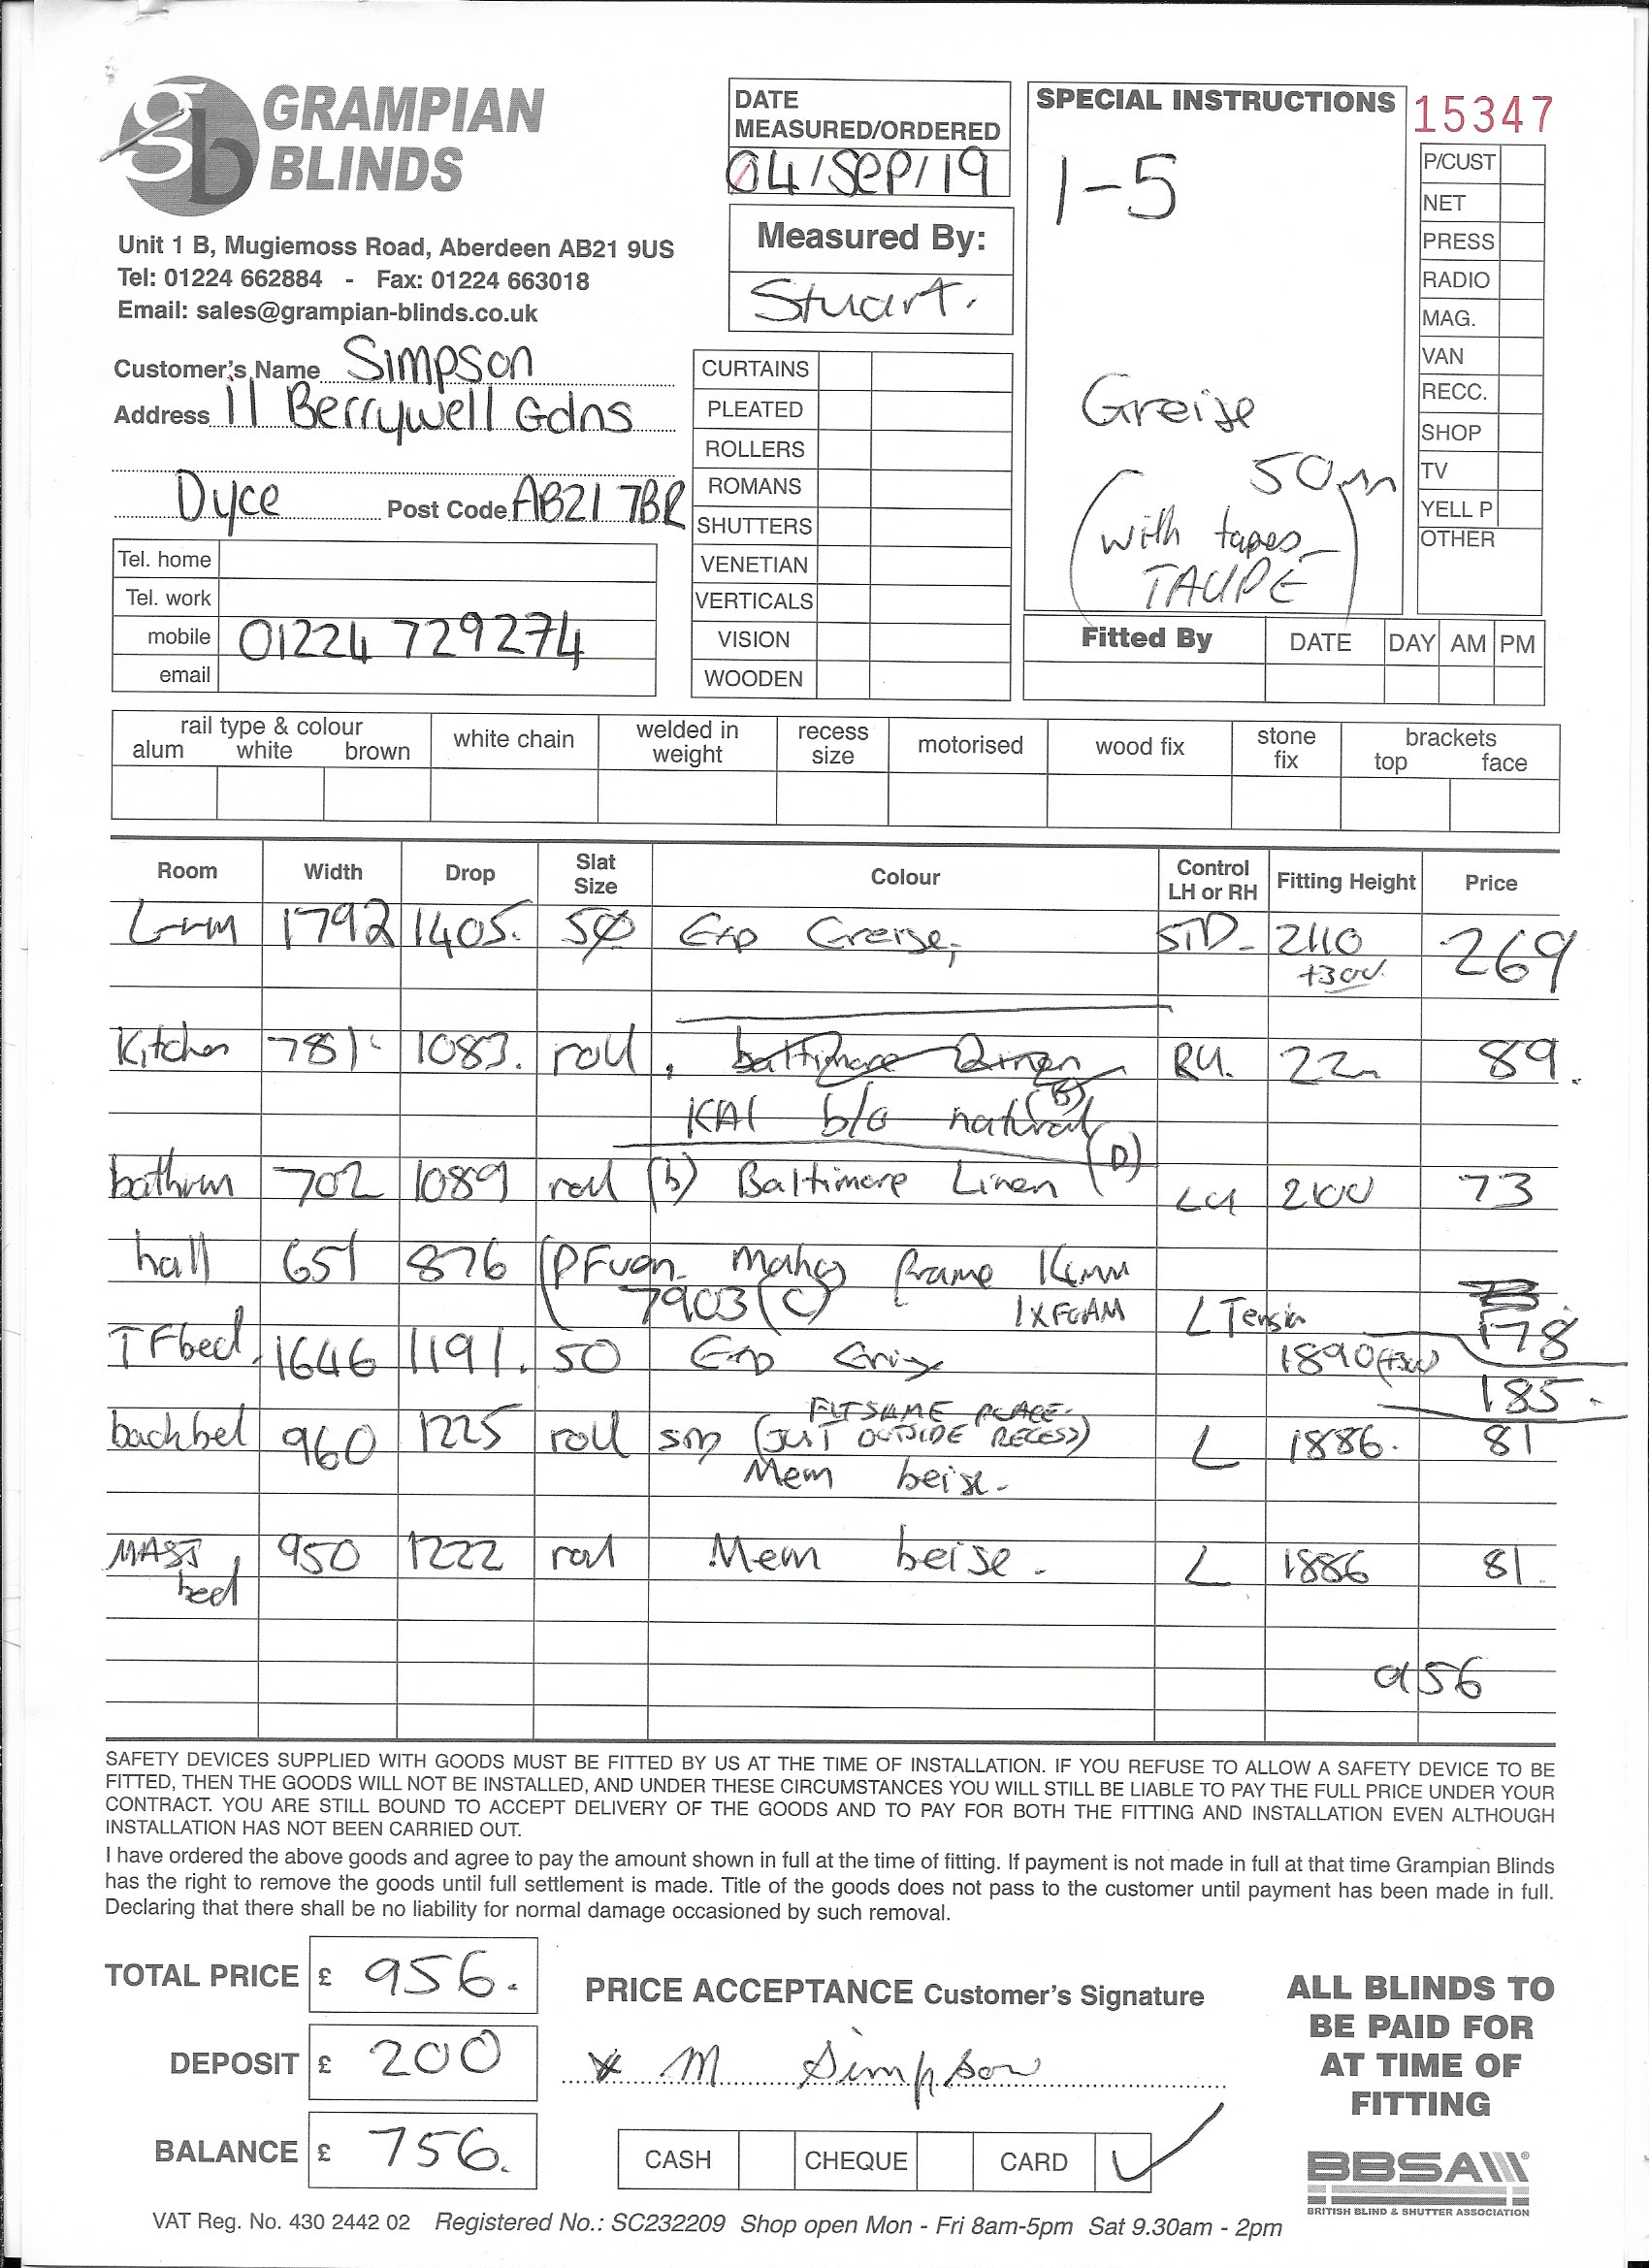 GRAMPIAN
BLINDS
Unit 1 B, Mugiemoss Road, Aberdeen AB21 9US
Tel: 01224 662884 - Fax: 01224 663018
Email: sales@grampian-blinds.co.uk
DATE
MEASURED/ORDERED
04/SEP/19
Measured By:
Stuart.
SPECIAL INSTRUCTIONS
1-5
Greise
50m
(with tapes
TAUPE)
15347
P/CUST
NET
PRESS
RADIO
MAG.
VAN
RECC.
SHOP
TV
YELL P
OTHER
Customer's Name Simpson
Address 11 Berrywell Gdns
Dyce Post Code AB21 7BR
Tel. home
Tel. work
mobile 01224 729274
email
CURTAINS
PLEATED
ROLLERS
ROMANS
SHUTTERS
VENETIAN
VERTICALS
VISION
WOODEN
Fitted By DATE DAY AM PM
rail type & colour
alum white brown
white chain
welded in weight
recess size
motorised
wood fix
stone fix
brackets
top face
Room Width Drop Slat Size Colour Control LH or RH Fitting Height Price
1792 1405. 50 Greise, STD- 2110 269
+300
Kitchen 781 1083. roll, baltimore Linen RH. 22 89.
KAI b/o natural (B)
bathrm 702 1089 roll (b) Baltimore Linen (D) LH 2100 73
hall 651 876 (PFven. Mahog frame 16mm
7903 (C) 1XFOAM L Tension 178
TFbed. 1646 1191. 50 1890 (+300)
185.
FIT SAME PLACE-
backbed 960 1225 roll (JUST OUTSIDE RECESS) L 1886. 81
Mem beise.
MAST bed 950 1222 roll Mem beise. L 1886 81.
956
SAFETY DEVICES SUPPLIED WITH GOODS MUST BE FITTED BY US AT THE TIME OF INSTALLATION. IF YOU REFUSE TO ALLOW A SAFETY DEVICE TO BE
FITTED, THEN THE GOODS WILL NOT BE INSTALLED, AND UNDER THESE CIRCUMSTANCES YOU WILL STILL BE LIABLE TO PAY THE FULL PRICE UNDER YOUR
CONTRACT. YOU ARE STILL BOUND TO ACCEPT DELIVERY OF THE GOODS AND TO PAY FOR BOTH THE FITTING AND INSTALLATION EVEN ALTHOUGH
INSTALLATION HAS NOT BEEN CARRIED OUT.
I have ordered the above goods and agree to pay the amount shown in full at the time of fitting. If payment is not made in full at that time Grampian Blinds
has the right to remove the goods until full settlement is made. Title of the goods does not pass to the customer until payment has been made in full.
Declaring that there shall be no liability for normal damage occasioned by such removal.
TOTAL PRICE £ 956.
DEPOSIT £ 200
BALANCE £ 756.
PRICE ACCEPTANCE Customer's Signature
x M Simpson
CASH CHEQUE CARD ✓
ALL BLINDS TO
BE PAID FOR
AT TIME OF
FITTING
BBSA
BRITISH BLIND & SHUTTER ASSOCIATION
VAT Reg. No. 430 2442 02 Registered No.: SC232209 Shop open Mon - Fri 8am-5pm Sat 9.30am - 2pm